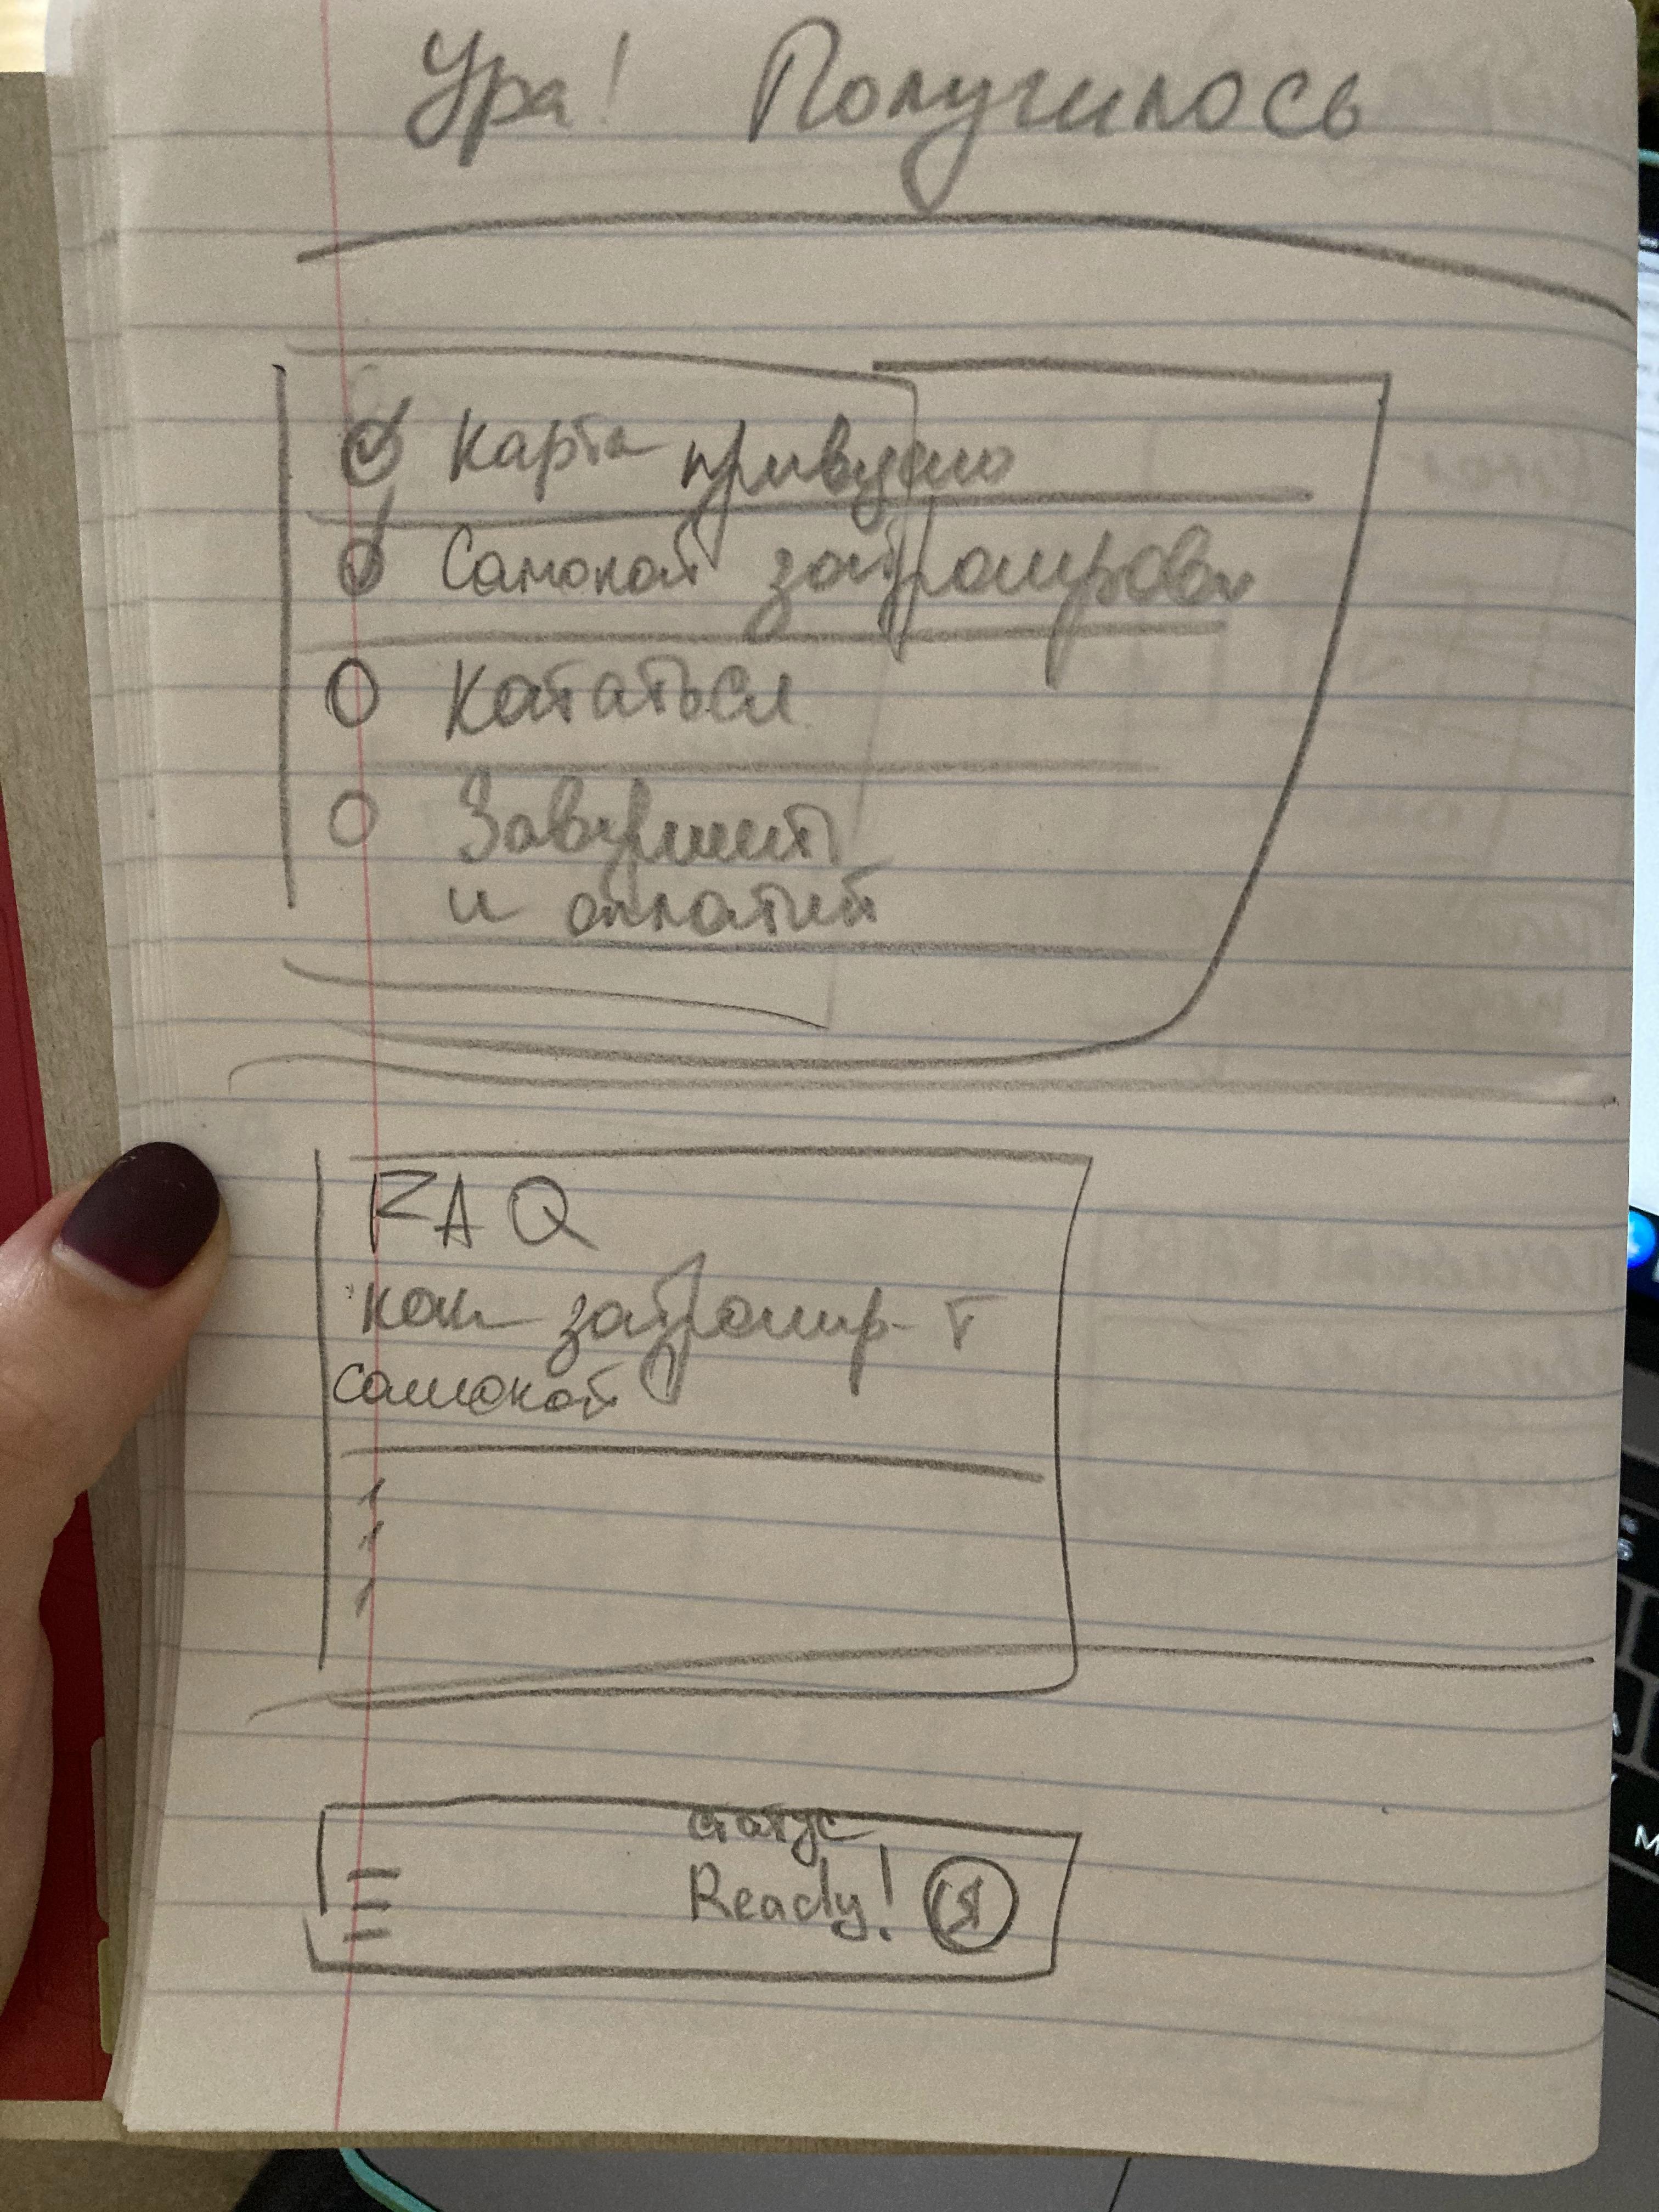 Ура! Получилось
Карта привязана
Самокат забронирован
Кататься
Завершить
и оплатить
FAQ
как забронир-т
самокат
статус
Ready!
Я